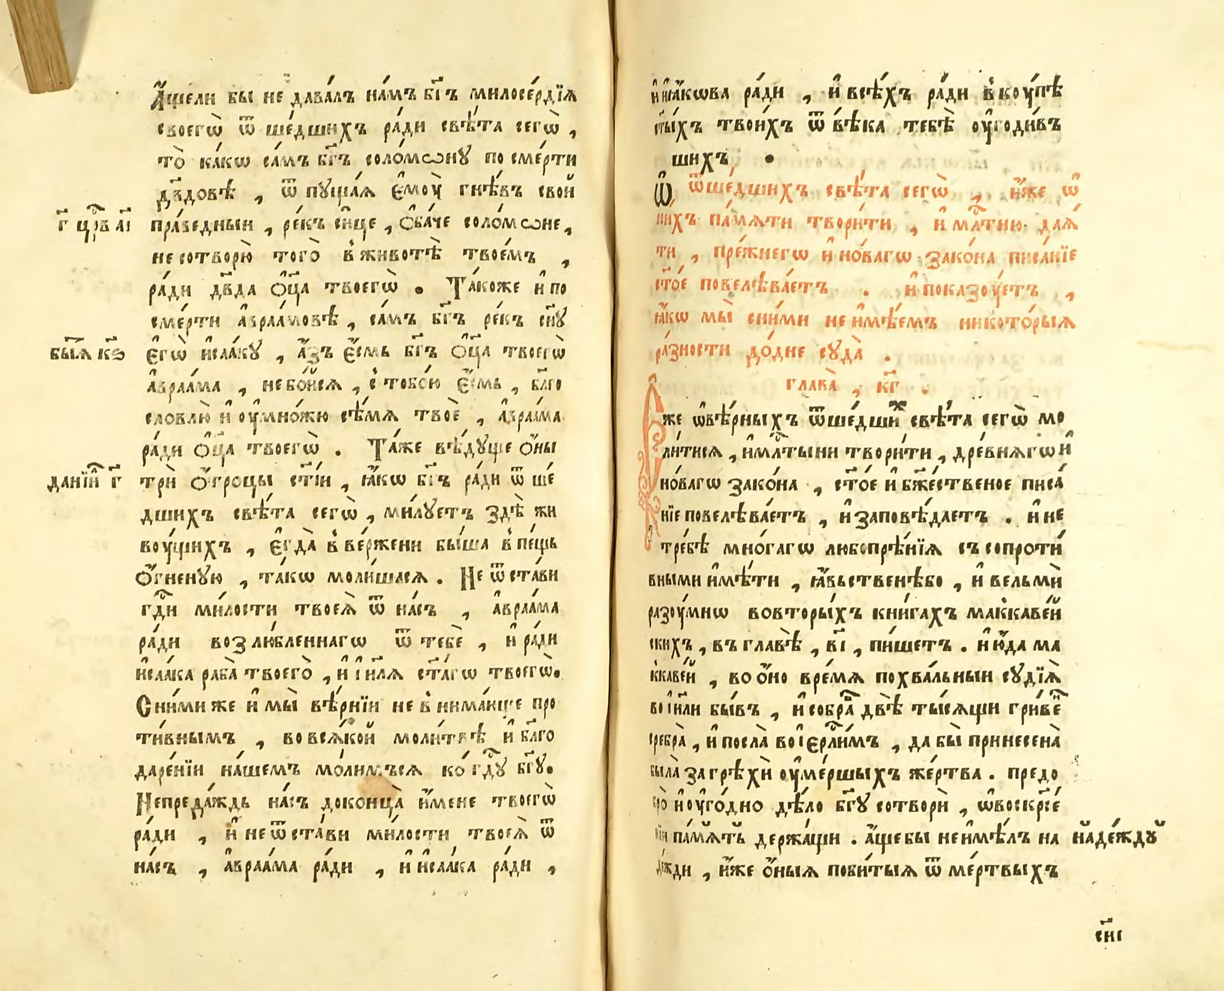 А҆́щели бы не дава́лъ на́мъ бг҃ъ милосе́рдїѧ
своегѡ̀ ѿ ше́дшихъ ра́ди свѣ́та сегѡ̀ ,
то̀ ка́кѡ са́мъ бг҃ъ соло́мѡнꙋ по сме́рти
дв҃довѣ , ѿ пꙋща́ѧ є҆моу̀ гнѣ́въ свой
г҃ цр҃в а҃і
пра́ведныи , ре́къ си́це , ѻ҆ба́че соло́мѡне,
не сотворю̀ того̀ в̾животѣ̀ твое́мъ ,
ра́ди дв҃да ѻ҆ц҃а твоегѡ̀ . Та́коже и҆ по
сме́рти а҆враа́мовѣ , са́мъ бг҃ъ ре́къ сн҃ꙋ
бы҃ѧ к҃ѕ
є҆гѡ̀ и҆саа́кꙋ , а҆́зъ є҆́смь бг҃ъ ѻ҆ц҃а твоегѡ̀
а҆враа́ма , не бо́йсѧ , с̾ тобо́ю є҆́смь , бл҃го
словлю̀ и҆ оу҆мно́жю сѣ́мѧ твоѐ , а҆враа́ма
ра́ди ѻ҆ц҃а твоегѡ̀ . Та́же вѣ́дꙋще ѻ҆ны
данїи҃ г҃
трѝ ѻ҆́троцы ст҃і́и , ꙗ҆́кѡ бг҃ъ ра́ди ѿ ше́
дшихъ свѣ́та сегѡ̀ , ми́лꙋетъ здѣ̀ жи
воу́щихъ , є҆гда̀ в̾ве́ржени бы́ша в̾ пе́щь
ѻ҆́гненꙋю , та́кѡ моли́шасѧ . Не ѿ ста́ви
гд҃и ми́лости твоеѧ̀ ѿ на́съ , а҆враа́ма
ра́ди возлю́бленнагѡ ѿ тебѐ , и҆ ра́ди
и҆саа́ка раба̀ твоего̀ , и҆ і҆и҃лѧ ст҃а́гѡ твоегѡ̀.
С ни́ми же и҆ мы̀ вѣ́рнїи не в̾нима́юще про
ти́внымъ , во всѧ́кой моли́твѣ и҆ бл҃го
даре́нїи на́шемъ мо́лимъсѧ ко̀ гд҃ꙋ бг҃ꙋ.
Не преда́ждь на́съ до конца̀ и҆́мене твоегѡ̀
ра́ди , и҆ не ѿ ста́ви ми́лости твоеѧ̀ ѿ
на́съ , а҆враа́ма ра́ди , и҆ и҆саа́ка ра́ди ,
и҆ і҆а́кѡва ра́ди , и҆ всѣ́хъ ра́ди в̾коу́пѣ
ст҃ы́хъ твои́хъ ѿ вѣ́ка тебѣ̀ оу҆годи́въ
шихъ .
Ѡ҆ ѿше́дшихъ свѣ́та сегѡ̀ , и҆́же ѡ҆
ни́хъ па́мѧти твори́ти , и҆ мл҃тню даѧ́
ти , пре́жнегѡ и҆ но́вагѡ зако́на писа́нїе
ст҃о́е повелѣва́етъ . и҆ показоу́етъ ,
ꙗ҆́кѡ мы̀ с ни́ми не и҆мѣ́ем никото́рыѧ
ра́зности до́ дне сꙋда̀ .
глава̀ , к҃г .
Е҆́же ѡ҆ вѣ́рныхъ ѿше́дших свѣ́та сегѡ̀ мо
ли́тисѧ , и҆ мл҃тыни твори́ти , дре́внѧгѡ и҆
но́вагѡ зако́на , ст҃о́е и҆ бж҃е́ственое писа́
нїе повелѣва́етъ , и҆ заповѣ́даетъ . и҆ не
тре́бѣ мно́гагѡ любопрѣ́нїѧ съ сопроти́
вными и҆мѣ́ти , ꙗ҆́вьственѣбо , и҆ вельмѝ
разоу́мнѡ во вторы́хъ кни́гах маккаве́й
скихъ , въ главѣ̀ , в҃і , пи́шетъ . и҆ ю҆́да ма
ккаве́й , во ѻ҆́но вре́мѧ похва́льныи сꙋдїѧ̀
во і҆и҃ли бы́въ , и҆ собра̀ двѣ̀ ты́сѧщи гри́ве҃
сребра̀ , и҆ посла̀ во і҆ерл҃и́мъ , да бы̀ принесена̀
была̀ за грѣхѝ оу҆ме́ршыхъ же́ртва . предо
и҆ оу҆го́дно дѣ́ло бг҃ꙋ сотворѝ , ѡ҆ воскр҃сє́
нїи па́мѧть держа́щи . а҆́ще бы не и҆мѣ́лъ на
наде́ждꙋ
де́жди , и҆́же ѻ҆́ныѧ поби́тыѧ ѿ ме́ртвыхъ
с҃нı